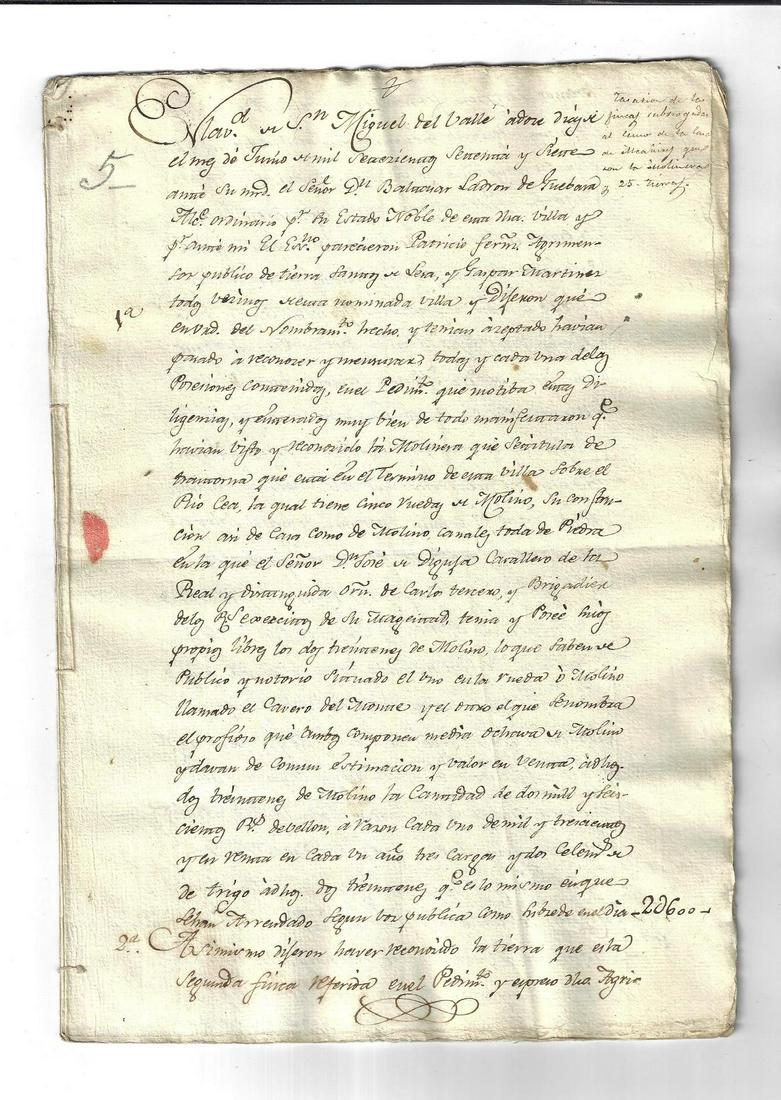 En la v.ᵈ de S.ⁿ Miguel del Valle à doze dias de
el mes de Junio de mil Setezientos Setenta y Siete
ante Su mrd. el Señor Dⁿ Baltasar Ladron de Guebara
Alc.ᵉ ordinario p.ʳ su Estado Noble de esta dha. Villa y
p.ʳ ante mi El Ess.ⁿᵒ parecieron Patricio Fern.ᶻ Agrimen-
sor publico de tierra y Gaspar Martinez
todos vezinos de esta nominada villa y Dijeron que
en vrd. del Nombram.ᵗᵒ hecho, y tenian azeptado havian
pasado à reconozer y mensurar, todas y cada una delas
Posesiones Contenidas, en el Pedim.ᵗᵒ que motiba estas di-
ligencias, y enterados muy bien de todo manifestaron q.ᵉ
havian visto y reconozido la Molinera que Setitula de
que está en el Termino de esta villa sobre el
Rio Cea, la qual tiene cinco ruedas de Molino, su constru-
cion asi de Casa como de Molino, canales toda de Piedra
en la que el Señor Dⁿ Josè de Cavallero de la
Real y distinguida Orn. de Carlos tercero, y Brigadier
delos R.ˢ exercitos de Su Magestad, tenia y Poseè suios
propios libres los dos treintenes de Molino, lo que saben de
Publico y notorio Situado el vno en la rueda ò Molino
llamado el Cavero del Monte y el otro el que Senombra
el profioso que ambos componen media ochava de Molino
y davan de comun estimacion y valor en Venta, à dhos.
dos treintenes de Molino la Cantidad de dos mill y seis-
cientos R.ˢ de vellon, à razon Cada vno de mil y trescientos
y en renta en cada vn año tres Cargas y dos Celem.ˢ de
de trigo à dhos. dos treintenes q.ᵉ es lo mismo en que
Sehan Arrendado segun voz publica como hibrede en el dia - 2U600 -
Asimismo dijeron haver reconozido la tierra que es la
Segunda finca referida en el Pedim.ᵗᵒ y expreso dho. Agri-
tasacion de las
fincas subrogadas
al
de que
son la Molinera
y 25. tierras.
5
1ª
2ª